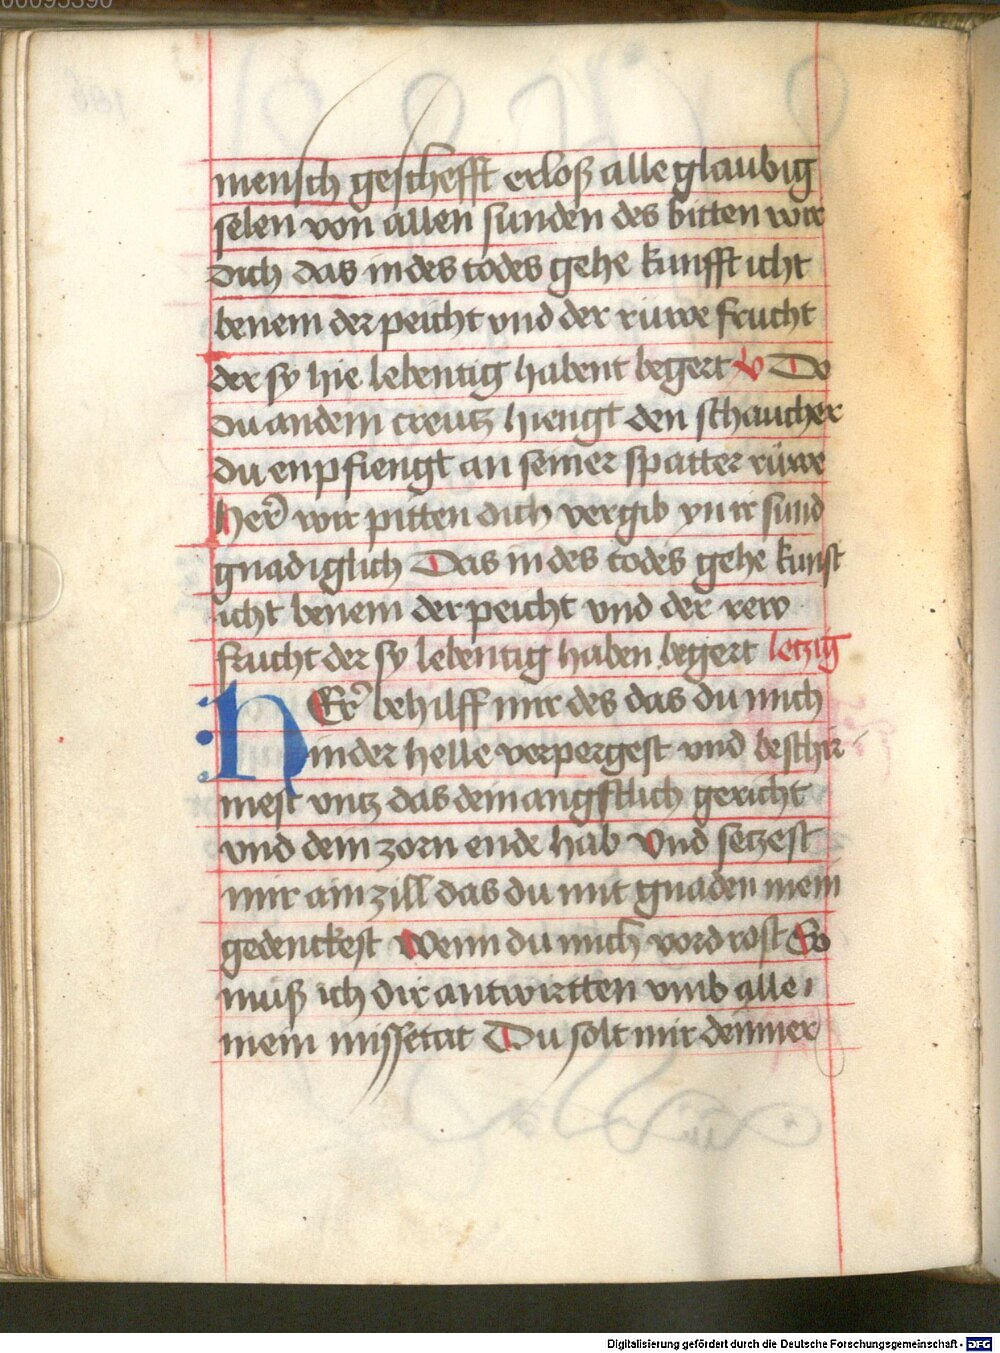 00095390
mensch geschefft erloß alle glaubig
selen von allen sunden des bitten wir
dich das in des todes gehe kunfft icht
benem der peicht vnd der ruwe frucht
der sy hie lebentig habent begert V Do
du an dem creutz hiengt den schaucher
du enpfiengt an seiner spatter rüwe
her wir pitten dich vergib yn ir sund
gnadiglich Das in des todes gehe kunft
icht benem der peicht vnd der rew
frucht der sy lebentig haben begert letzig
HEr behilff mir des das du mich
in der helle verpergest vnd beschir
mest vntz das dein angstlich gericht
vnd dein zorn ende hab Vnd setzest
mir ain zill das du mit gnaden mein
gedenckest Wenn du mich vordrost So
muß ich dir antwurtten vmb alle
mein missetat Du solt mir dein mer
Digitalisierung gefördert durch die Deutsche Forschungsgemeinschaft - DFG